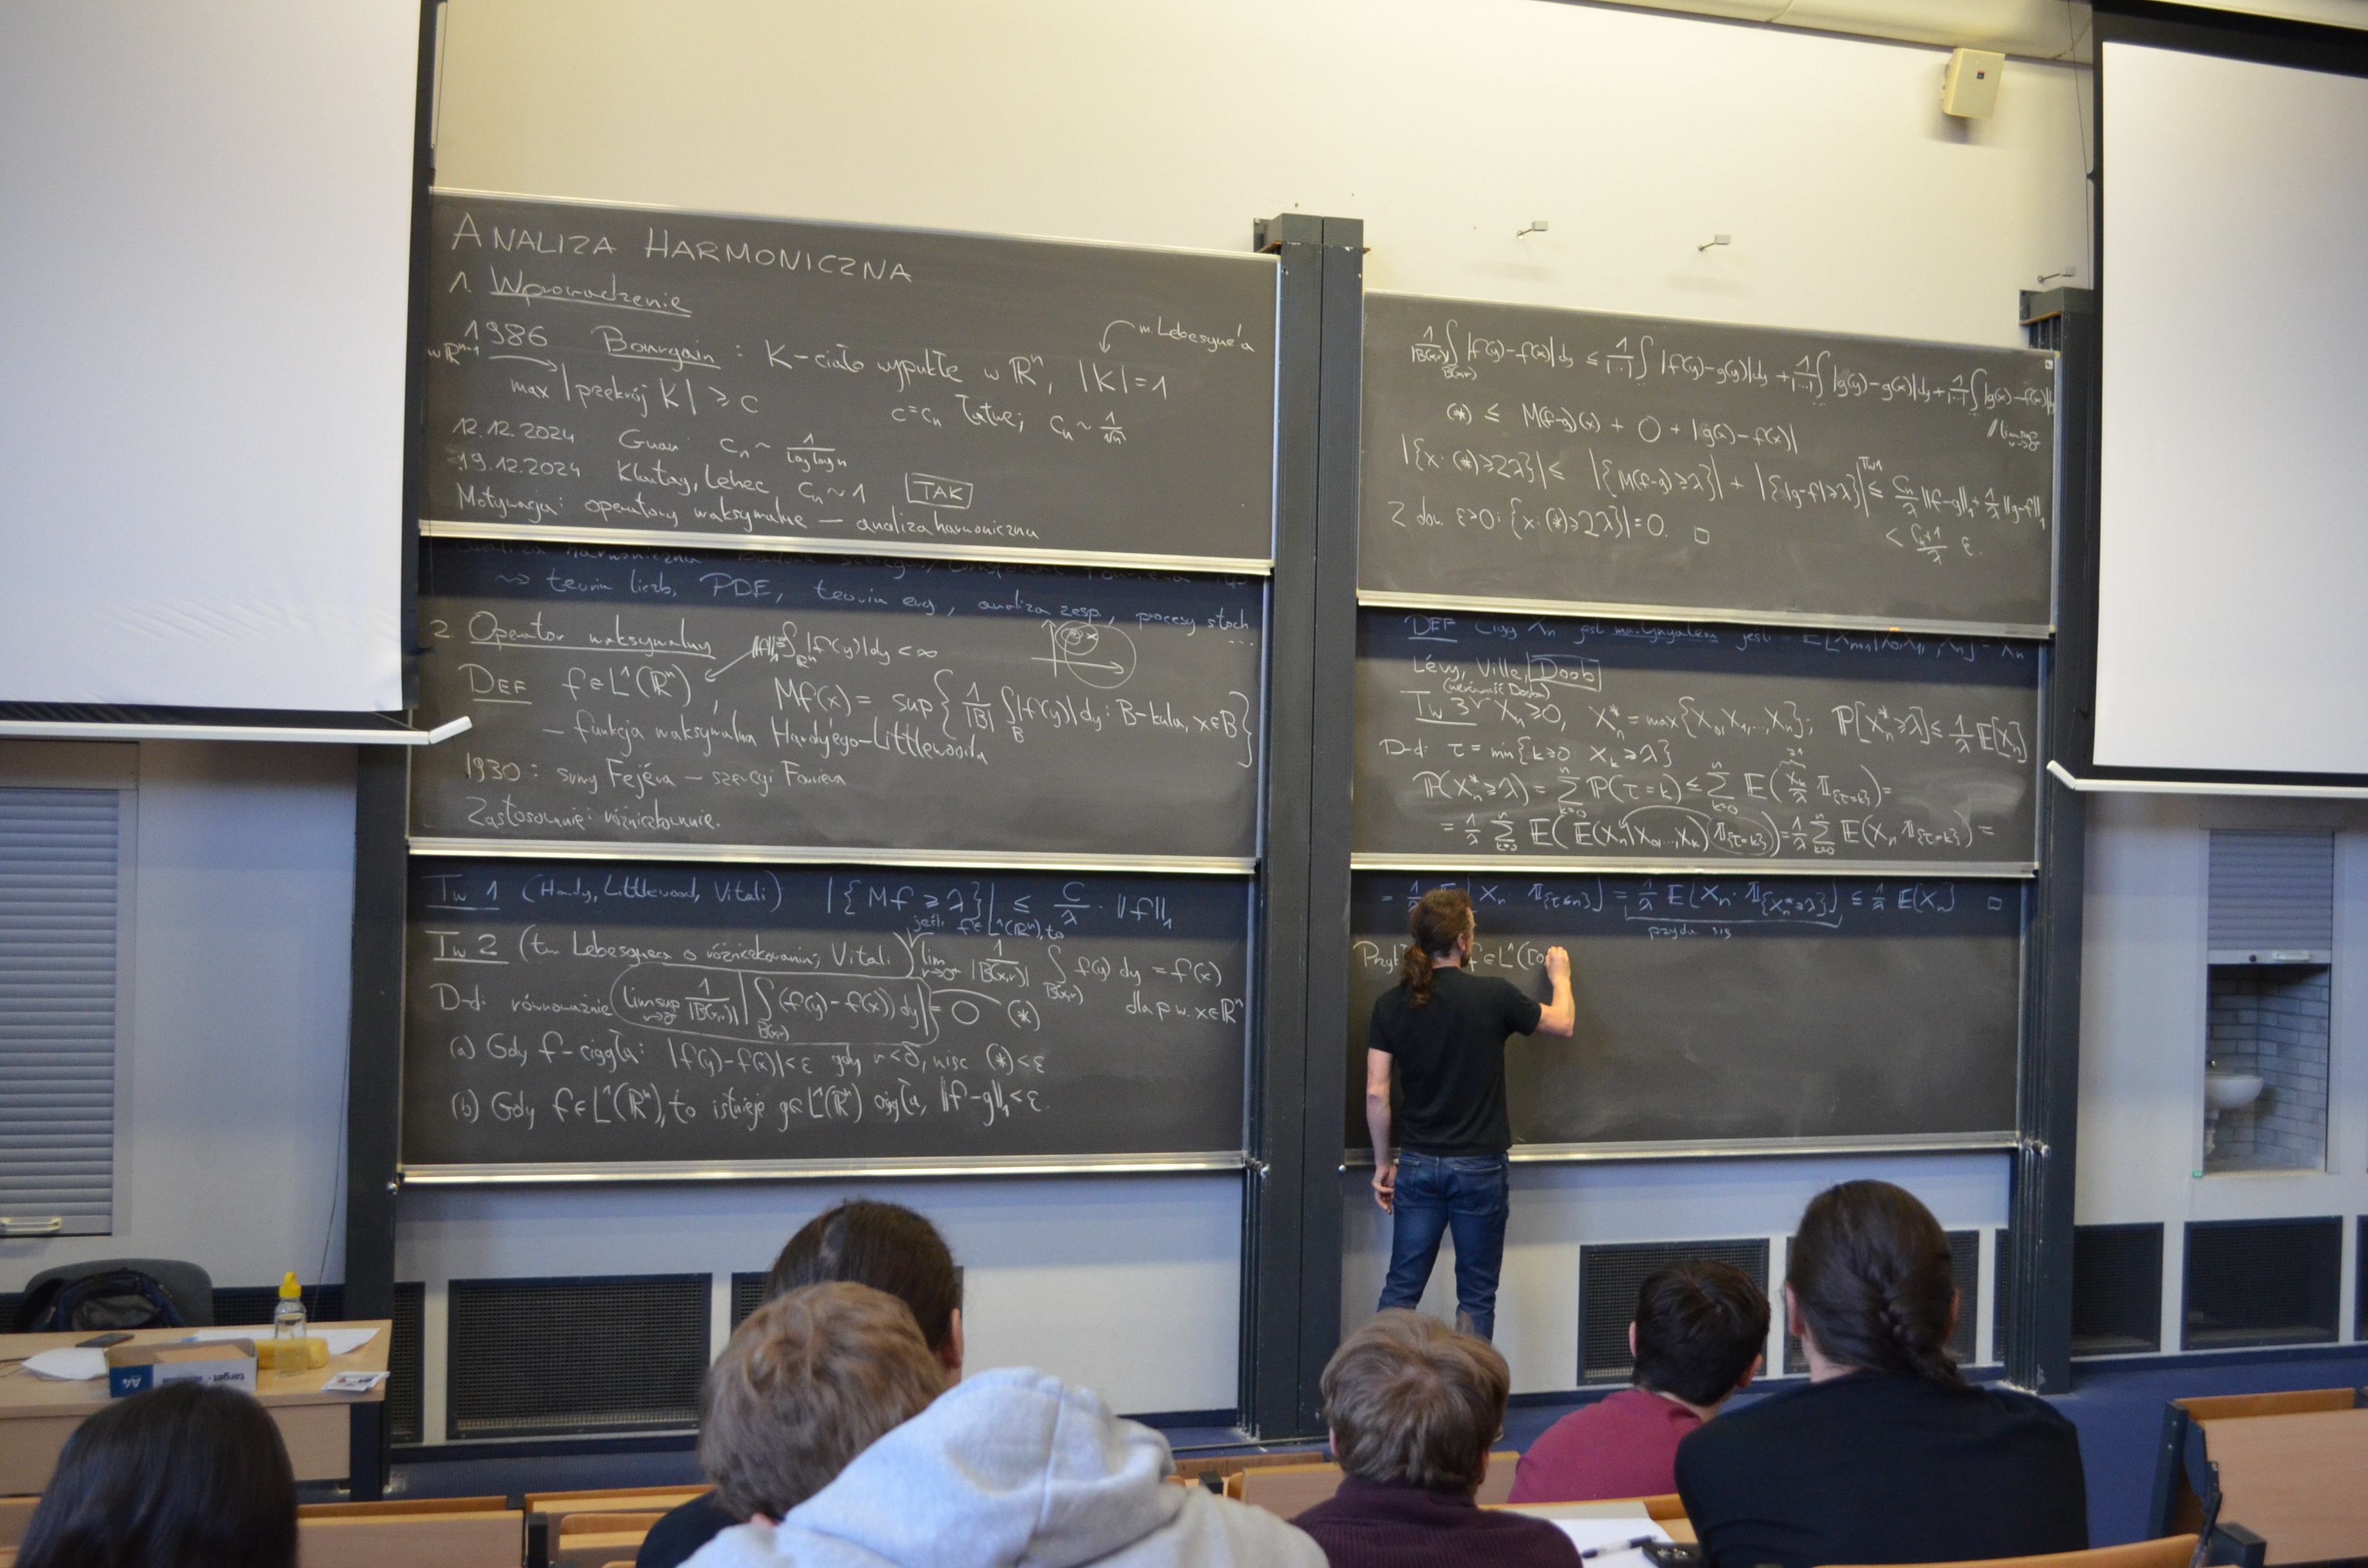 ANALIZA HARMONICZNA
1. Wprowadzenie
1986 Bourgain: K-ciało wypukłe w ℝⁿ, |K|=1
m. Lebesgue'a
w ℝⁿ⁻¹
max |przekrój K| ≥ c
c=cₙ łatwe; cₙ ~ 1/√n
12.12.2024 Guan: cₙ ~ 1/log log n
19.12.2024 Klartag, Lehec cₙ ~ 1 TAK
Motywacja: operatory maksymalne — analiza harmoniczna
analiza harmoniczna
⇝ teoria liczb, PDE, teoria erg, analiza zesp., procesy stoch...
2. Operator maksymalny
‖f‖₁=∫_ℝⁿ |f(y)|dy < ∞
DEF f∈L¹(ℝⁿ), Mf(x) = sup{1/|B| ∫_B |f(y)|dy: B-kula, x∈B}
— funkcja maksymalna Hardy'ego-Littlewooda
1930: sumy Fejéra — szeregi Fouriera
Zastosowanie: różniczkowanie.
Tw 1 (Hardy, Littlewood, Vitali) |{Mf ≥ λ}| ≤ C/λ · ‖f‖₁
jeśli f∈L¹(ℝⁿ), to
Tw 2 (tw Lebesgue'a o różniczkowaniu; Vitali) lim_{r→0⁺} 1/|B(x,r)| ∫_{B(x,r)} f(y) dy = f(x)
dla p.w. x∈ℝⁿ
D-d: równoważnie limsup_{r→0⁺} 1/|B(x,r)| |∫_{B(x,r)} (f(y)-f(x)) dy| = 0 (*)
(a) Gdy f-ciągła: |f(y)-f(x)|<ε gdy r<δ, więc (*)<ε
(b) Gdy f∈L¹(ℝⁿ), to istnieje g∈L¹(ℝⁿ) ciągła, ‖f-g‖₁<ε.
1/|B(x,r)| ∫_{B(x,r)} |f(y)-f(x)|dy ≤ 1/|...| ∫ |f(y)-g(y)|dy + 1/|...| ∫ |g(y)-g(x)|dy + 1/|...| ∫ |g(x)-f(x)|
// limsup r→0⁺
(*) ≤ M(f-g)(x) + 0 + |g(x)-f(x)|
|{x: (*)≥2λ}| ≤ |{M(f-g)≥λ}| + |{|g-f|≥λ}| ≤^{Tw1} Cₙ/λ ‖f-g‖₁ + 1/λ ‖g-f‖₁
< (Cₙ+1)/λ ε.
Z dow. ε>0: |{x: (*)≥2λ}|=0. □
DEF Ciąg Xₙ jest martyngałem jeśli E[Xₙ₊₁|X₀,X₁,...,Xₙ] = Xₙ
Lévy, Ville, Doob
(nierówność Dooba)
Tw 3 Xₙ≥0, Xₙ* = max{X₀,X₁,...,Xₙ}; ℙ[Xₙ*≥λ] ≤ 1/λ 𝔼[Xₙ]
D-d: τ = min{k≥0: X_k≥λ}
≥1
ℙ(Xₙ*≥λ) = Σ_{k=0}^n ℙ(τ=k) ≤ Σ_{k=0}^n 𝔼(X_k/λ 𝟙_{τ=k}) =
= 1/λ Σ_{k=0}^n 𝔼(𝔼(Xₙ|X₀,...,X_k) 𝟙_{τ=k}) = 1/λ Σ_{k=0}^n 𝔼(Xₙ 𝟙_{τ=k}) =
= 1/λ 𝔼[Xₙ 𝟙_{τ≤n}] = 1/λ 𝔼[Xₙ · 𝟙_{Xₙ*≥λ}] ≤ 1/λ 𝔼[Xₙ] □
przyda się
f∈L¹([0,
A4
target